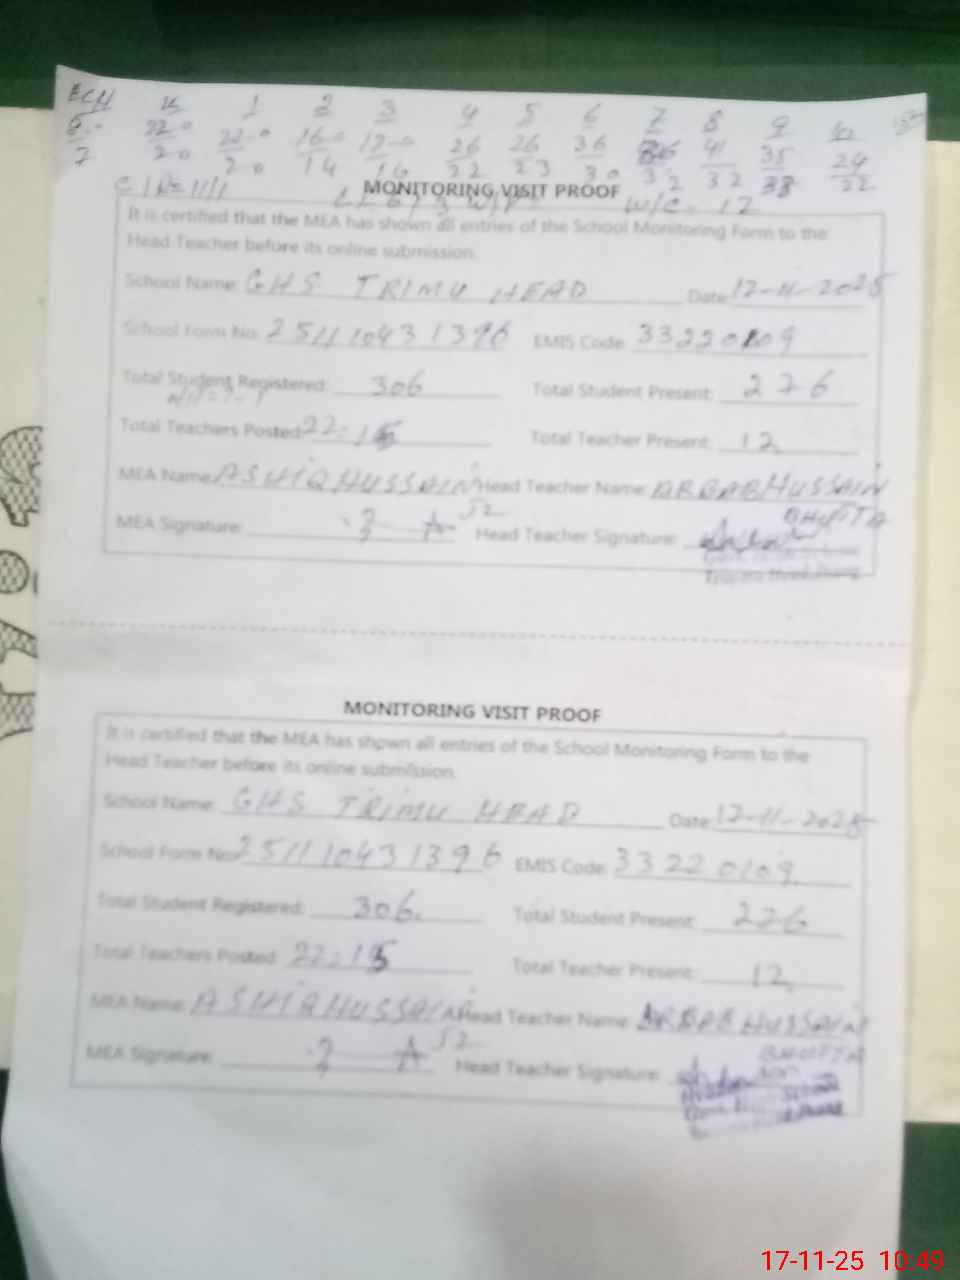 ECH K 1 2 3 4 5 6 7 8 9 10
22 22 16 17 26 26 36 36 41 35 24
7 20 20 14 16 22 23 30 32 32 33 22
MONITORING VISIT PROOF W/C - 12
It is certified that the MEA has shown all entries of the School Monitoring Form to the
Head Teacher before its online submission.
School Name: GHS TRIMU HEAD Date: 17-11-2025
School Form No: 2511 10431396 EMIS Code: 33220109
Total Student Registered: 306 Total Student Present: 276
Total Teachers Posted: 22 Total Teacher Present: 12
MEA Name: ASHIQ HUSSAIN Head Teacher Name: ARBAB HUSSAIN
BHUTTA
MEA Signature: Head Teacher Signature:
MONITORING VISIT PROOF
It is certified that the MEA has shown all entries of the School Monitoring Form to the
Head Teacher before its online submission.
School Name: GHS TRIMU HEAD Date: 17-11-2025
School Form No: 2511 10431396 EMIS Code: 33220109
Total Student Registered: 306 Total Student Present: 276
Total Teachers Posted: 22 Total Teacher Present: 12
MEA Name: ASHIQ HUSSAIN Head Teacher Name: ARBAB HUSSAIN
BHUTTA
MEA Signature: Head Teacher Signature:
17-11-25 10:49